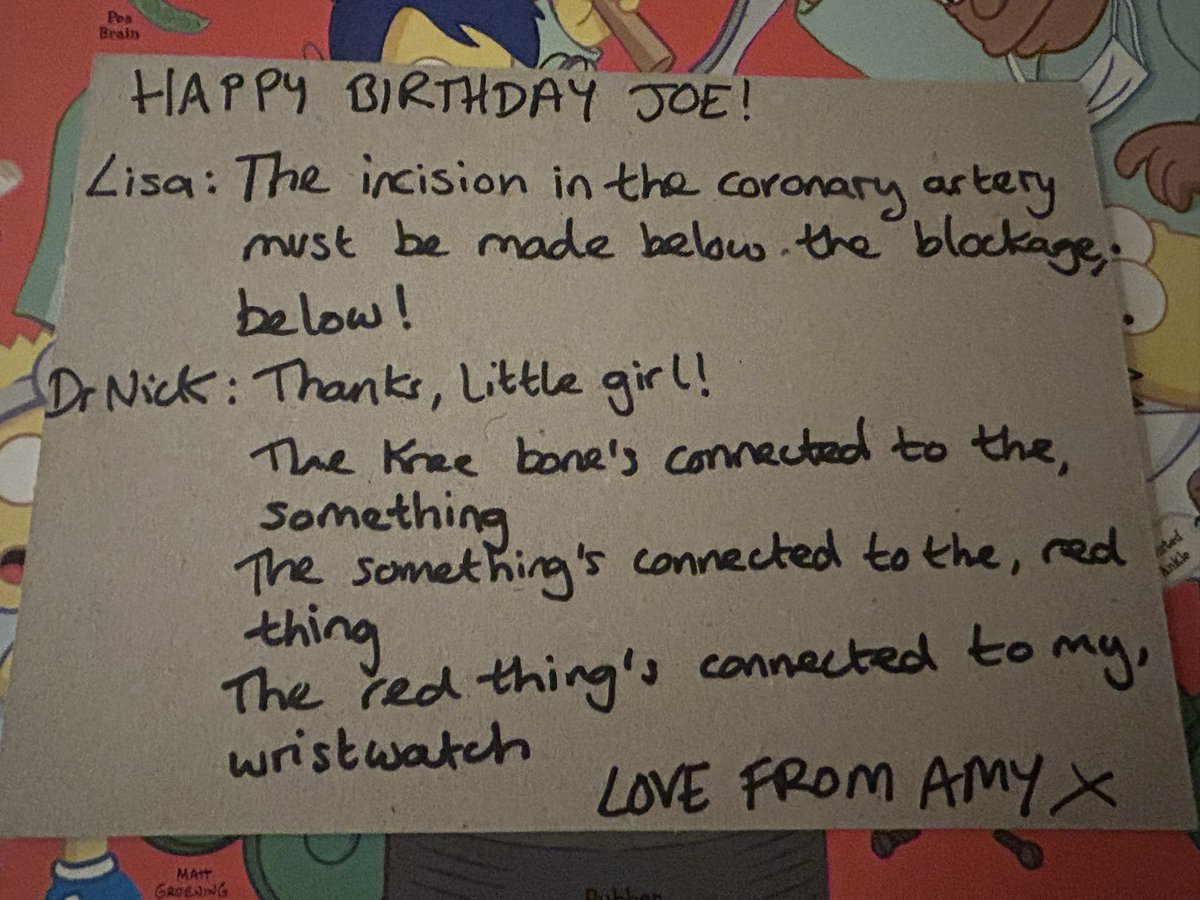 Pea
Brain
HAPPY BIRTHDAY JOE!
Lisa: The incision in the coronary artery
must be made below the blockage,
below!
Dr Nick: Thanks, Little girl!
The Knee bone's connected to the,
something
The something's connected to the, red
thing
The red thing's connected to my,
wristwatch
LOVE FROM AMY X
MATT
GROENING